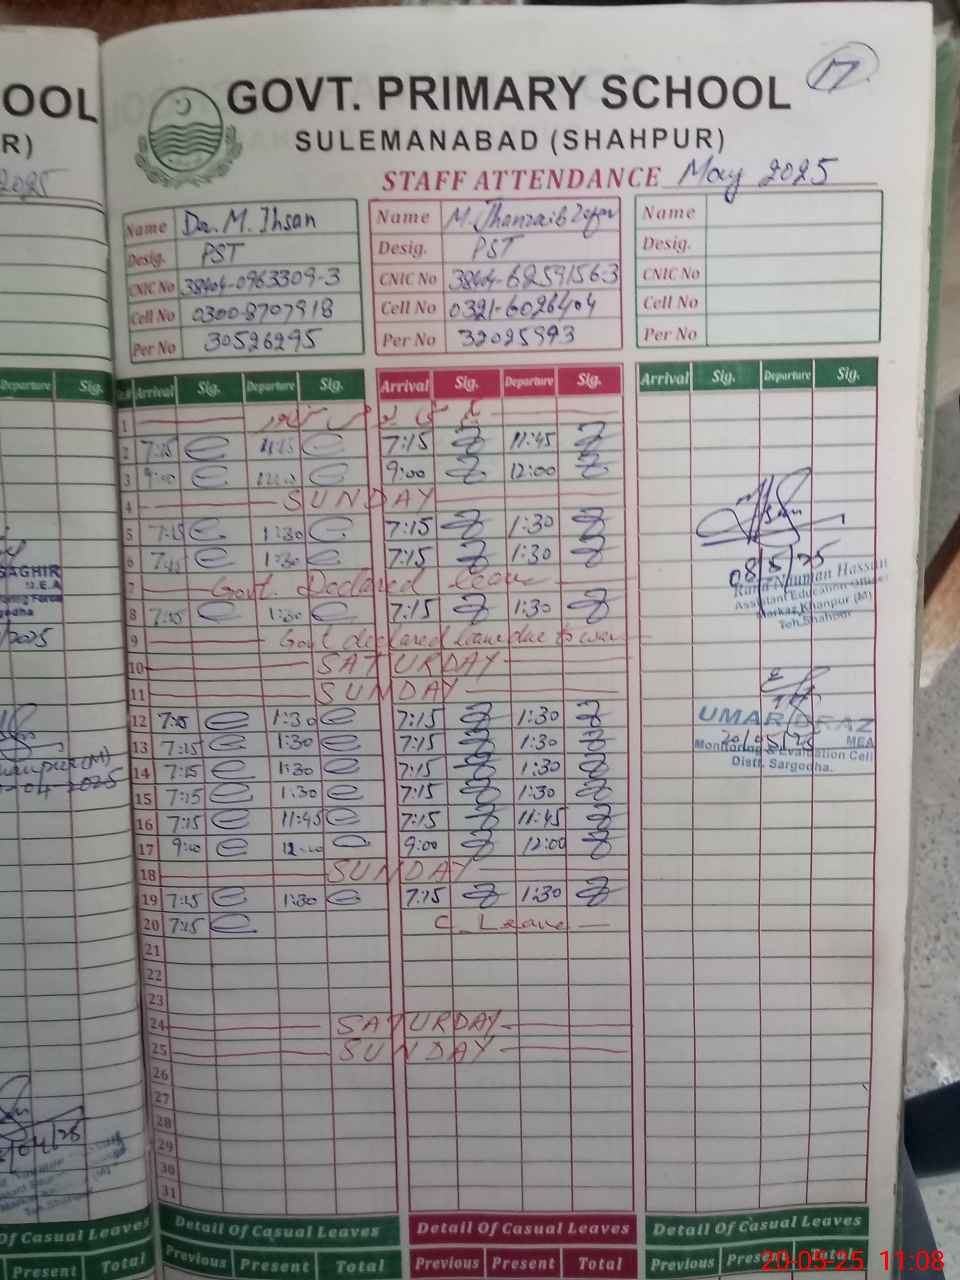 OOL
R)
2025
17
GOVT. PRIMARY SCHOOL
SULEMANABAD (SHAHPUR)
STAFF ATTENDANCE May 2025
Name Dr. M. Ihsan Name M. Jhanzaib Zafar Name
Desig. PST Desig. PST Desig.
CNIC No 38404-0963309-3 CNIC No 38404-6859156-3 CNIC No
Cell No 0300-8707918 Cell No 0321-6026404 Cell No
Per No 30526295 Per No 32025993 Per No
Departure Sig. Arrival Sig. Departure Sig. Arrival Sig. Departure Sig. Arrival Sig. Departure Sig.
1
2 7:15 11:45 7:15 11:45
3 9:00 12:00 9:00 12:00
4 SUNDAY
5 7:15 1:30 7:15 1:30
6 7:15 1:30 7:15 1:30
7 Govt. Declared leave
8 7:15 1:30 7:15 1:30
9 Govt declared leave due to war
10 SATURDAY
11 SUNDAY
12 7:15 1:30 7:15 1:30
13 7:15 1:30 7:15 1:30
14 7:15 1:30 7:15 1:30
15 7:15 1:30 7:15 1:30
16 7:15 11:45 7:15 11:45
17 9:00 12:00 9:00 12:00
18 SUNDAY
19 7:15 1:30 7:15 1:30
20 7:15 C. Leave
21
22
23
24 SATURDAY
25 SUNDAY
26
27
28
29
30
31
08/5/25
Rana Nauman Hassan
Assistant Education Officer
Markaz Khanpur (M)
Teh. Shahpur
UMAR DRAZ
20/05/25 MEA
Monitoring & Evaluation Cell
Distt. Sargodha.
SAGHIR
M.E.A
/2025
Of Casual Leaves Detail Of Casual Leaves Detail Of Casual Leaves Detail Of Casual Leaves
Present Total Previous Present Total Previous Present Total Previous Present Total
20-05-25 11:08